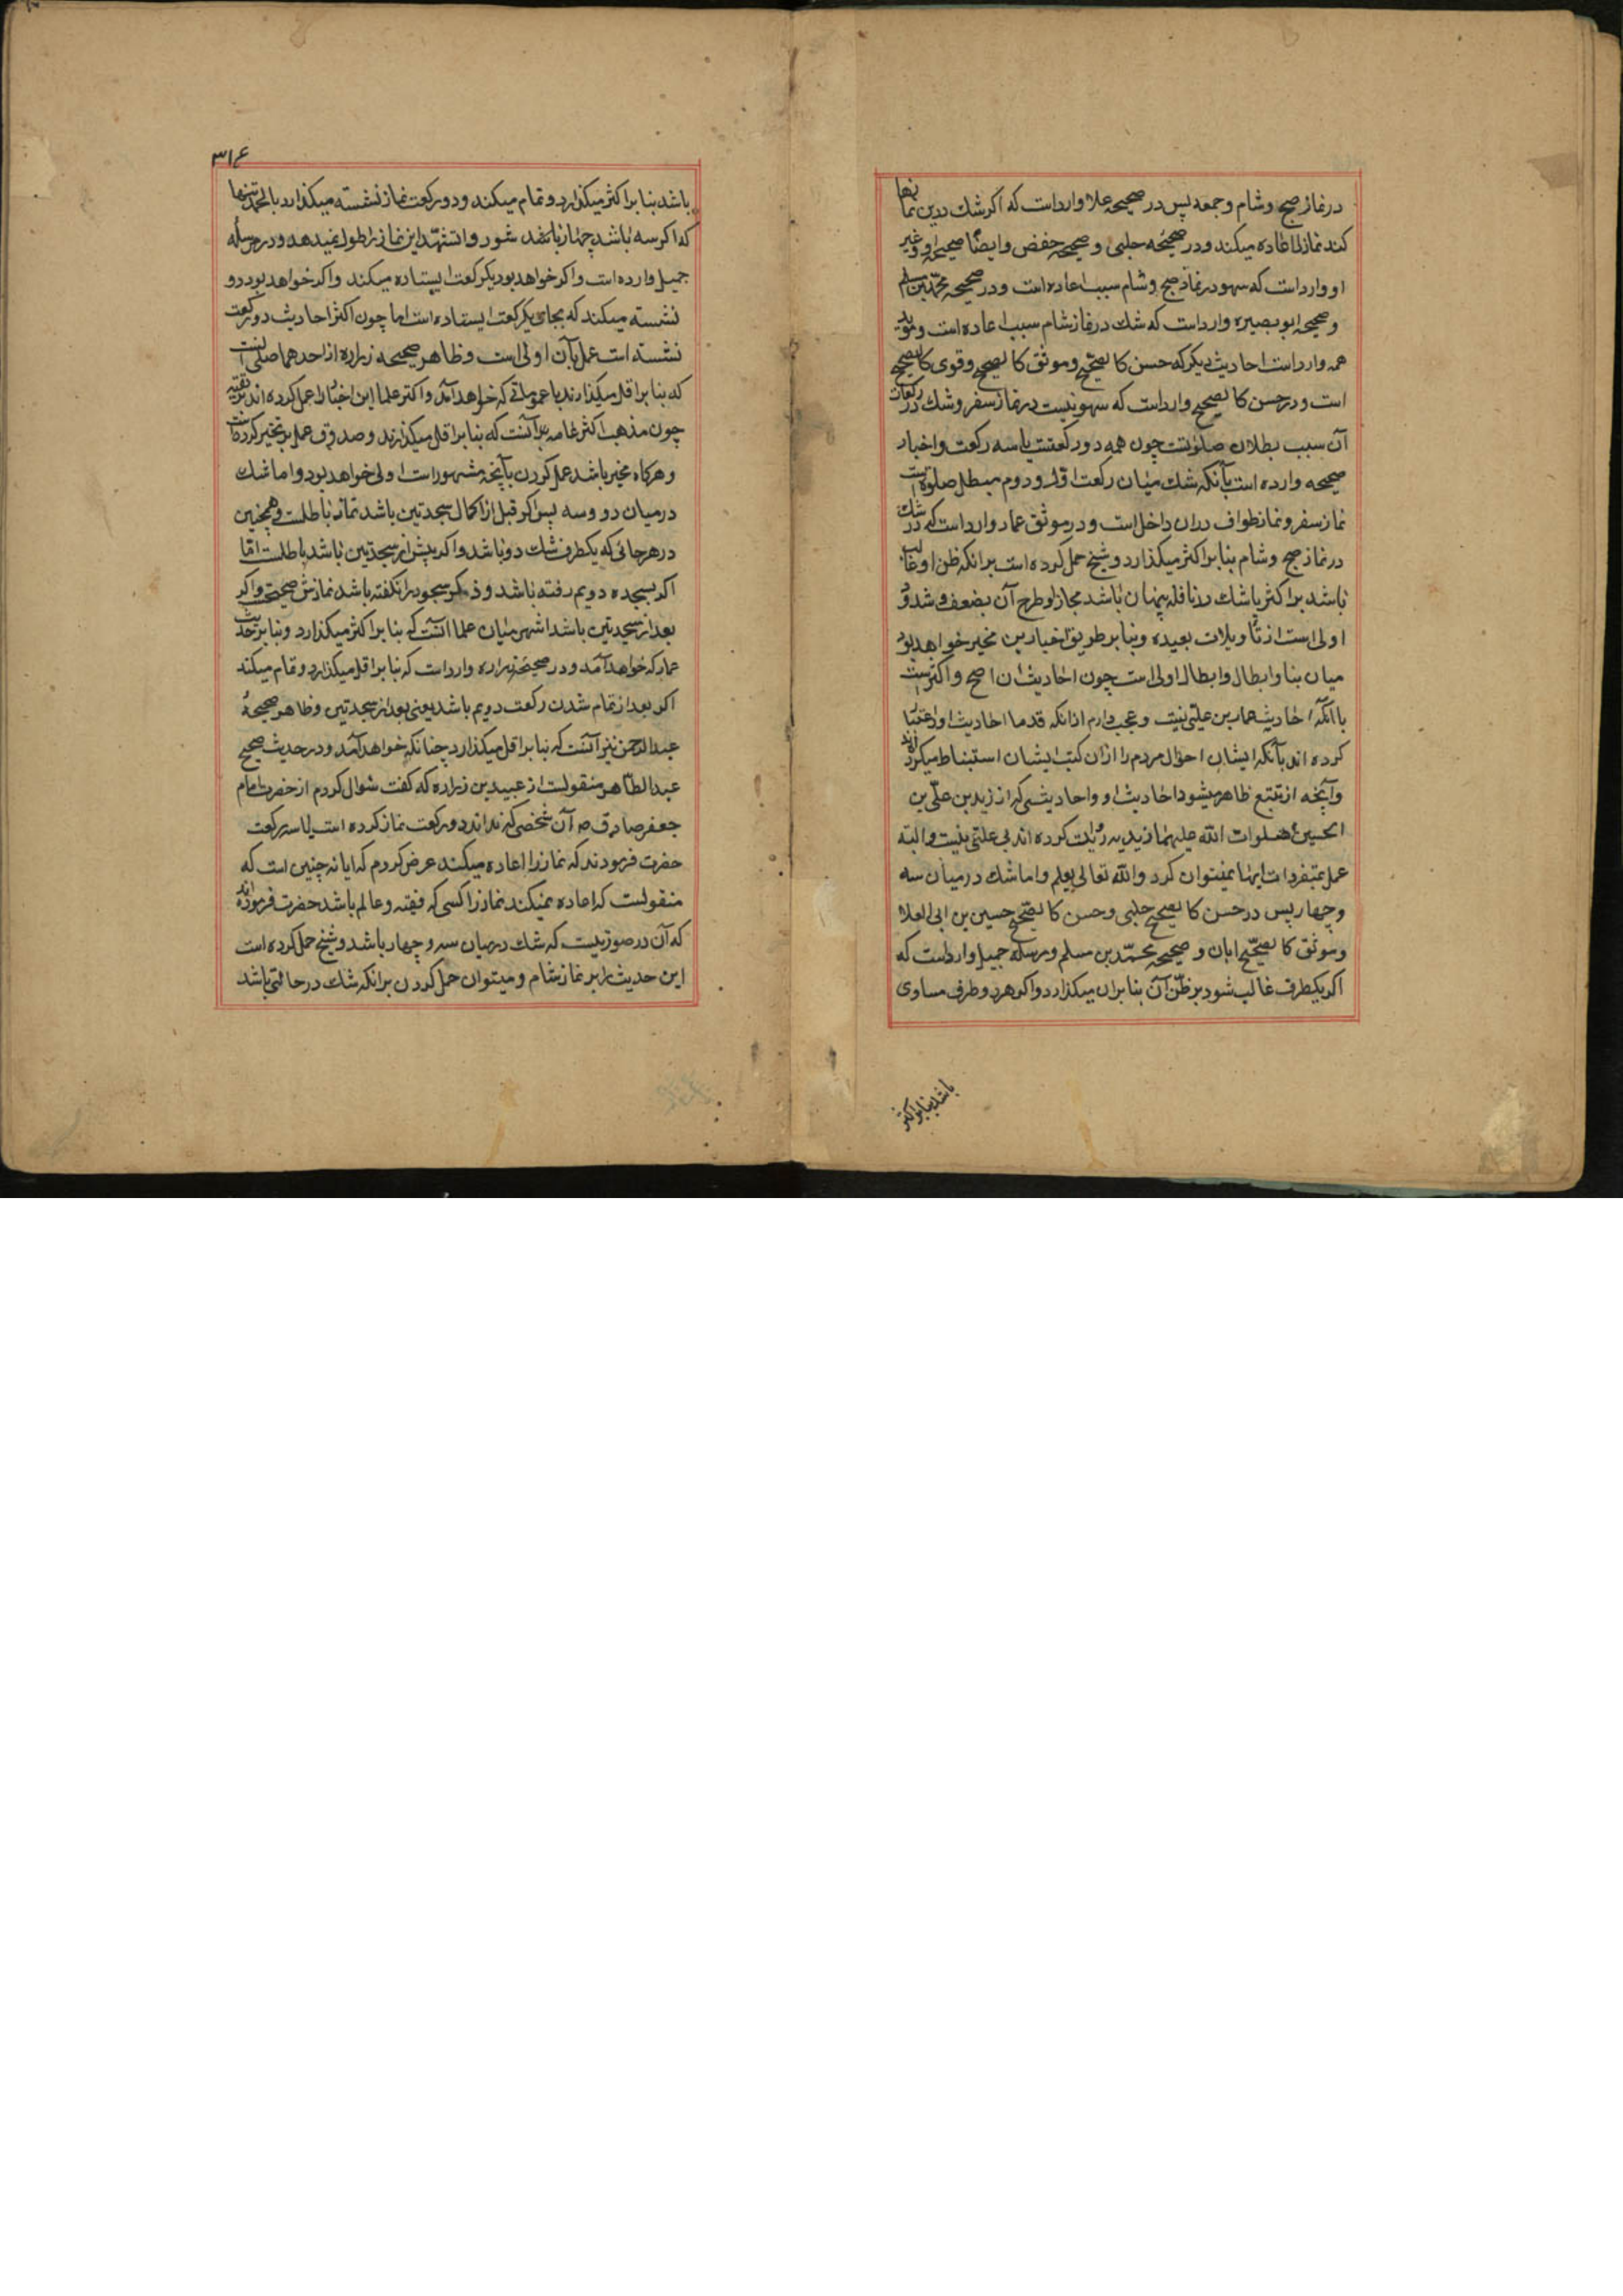 در نماز صبح و شام و جمعه پس در صحیحه علا وارد است که اکر شك در این نمازها
کند نماز را اعاده میکند و در صحیحه حلبی و صحیحه حفص و ایضا صحیحه او و غیر
او وارد است که سهو در نماز صبح و شام سبب اعاده است و در صحیحه محمد بن مسلم
و صحیحه ابو بصیر وارد است که شك در نماز شام سبب اعاده است و مؤید
همه وارد است احادیث دیکر که حسن کالصحیح و موثق کالصحیح و قوی کالصحیح
است و در حسن کالصحیح وارد است که سهو نیست در نماز سفر و شك در رکعات
آن سبب بطلان صلوتست چون همه دو رکعتست یا سه رکعت و اخبار
صحیحه وارده است بآنکه شك میان رکعت اول و دوم مبطل صلوة است
نماز سفر و نماز طواف در ان داخل است و در موثق عمار وارد است که در شك
در نماز صبح و شام بنا بر اکثر میکذارد و شیخ حمل کرده است بر انکه ظن او غالب
باشد بر اکثر یا شك در نافله پنهان باشد مجازا و طرح آن بضعف و شذوذ
اولی است از تأویلات بعیده و بنا بر طریق اخبارین مخیر خواهد بود
میان بنا و ابطال و ابطال اولی است چون احادیث ان اصح و اکثر است
با انکه احادیث عمار بی علتی نیست و عجب دارم از انکه قدما احادیث او را اعتنا
کرده اند بآنکه ایشان احوال مردم را از ان کتب ایشان استنباط میکردند
و آنچه از تتبع ظاهر میشود احادیث او و احادیثی که از زید بن علی بن
الحسین صلوات الله علیهما زیدیه روایت کرده اند بی علتی نیست و البته
عمل بمتفردات اینها نمیتوان کرد و الله تعالی یعلم و اما شك در میان سه
و چهار پس در حسن کالصحیح حلبی و حسن کالصحیح حسین بن ابی العلا
و موثق کالصحیح ابان و صحیحه محمد بن مسلم و مرسله جمیل وارد است که
اکر یکطرف غالب شود بر ظن آن بنا بر ان میکذارد و اکر هر دو طرف مساوی
باشد بنا بر اکثر
۳۱۶
باشد بنا بر اکثر میکذارد و تمام میکند و دو رکعت نماز نشسته میکذارد بالحمد تنها
که اکر سه باشد چهار یا نقد شود و تشهد این نماز را طول نمیدهد و در مرسله
جمیل وارده است و اکر خواهد بود یکرکعت ایستاده میکند و اکر خواهد بود دو
نشسته میکند که بجای یکرکعت ایستاده است اما چون اکثر احادیث دو رکعت
نشسته است عمل بآن اولی است و ظاهر صحیحه زراره از احدهما صلی
که بنا بر اقل میکذارند با عموماتی که خواهد آمد و اکثر علما این اخبار را حمل کرده اند بر تقیه
چون مذهب اکثر عامه بر آنست که بنا بر اقل میکذارند و صدوق عمل بر تخیر کرده است
و هرکاه مخیر باشد عمل کردن بآنچه مشهور است اولی خواهد بود و اما شك
در میان دو و سه پس اکر قبل از اکمال سجدتین باشد نماز باطلست و همچنین
در هر جائی که یکطرف شك دو باشد و اکر پیش از سجدتین باشد باطلست اما
اکر بسجده دویم رفته باشد و ذکر سجود را نکفته باشد نمازش صحیحست و اکر
بعد از سجدتین باشد اشهر میان علما آنست که بنا بر اکثر میکذارد و بنا بر حدیث
عمار که خواهد آمد و در صحیحه زراره وارد است که بنا بر اقل میکذارد و تمام میکند
اکر بعد از تمام شدن رکعت دویم باشد یعنی بعد از سجدتین و ظاهر صحیحه
عبد الرحمن نیز آنست که بنا بر اقل میکذارد چنانکه خواهد آمد و در حدیث صحیح
عبد الطاهر منقولست از عبید بن زراره که کفت سؤال کردم از حضرت امام
جعفر صادق ص آن شخصی که نداند دو رکعت نماز کرده است یا سه رکعت
حضرت فرمودند که نماز را اعاده میکند عرض کردم که ایا نه چنین است که
منقولست که اعاده نمیکند نماز را کسی که فقیه و عالم باشد حضرت فرموده اند
که آن در صورتیست که شك در میان سه و چهار باشد و شیخ حمل کرده است
این حدیث را بر نماز شام و میتوان حمل کردن بر انکه شك در حالتی باشد